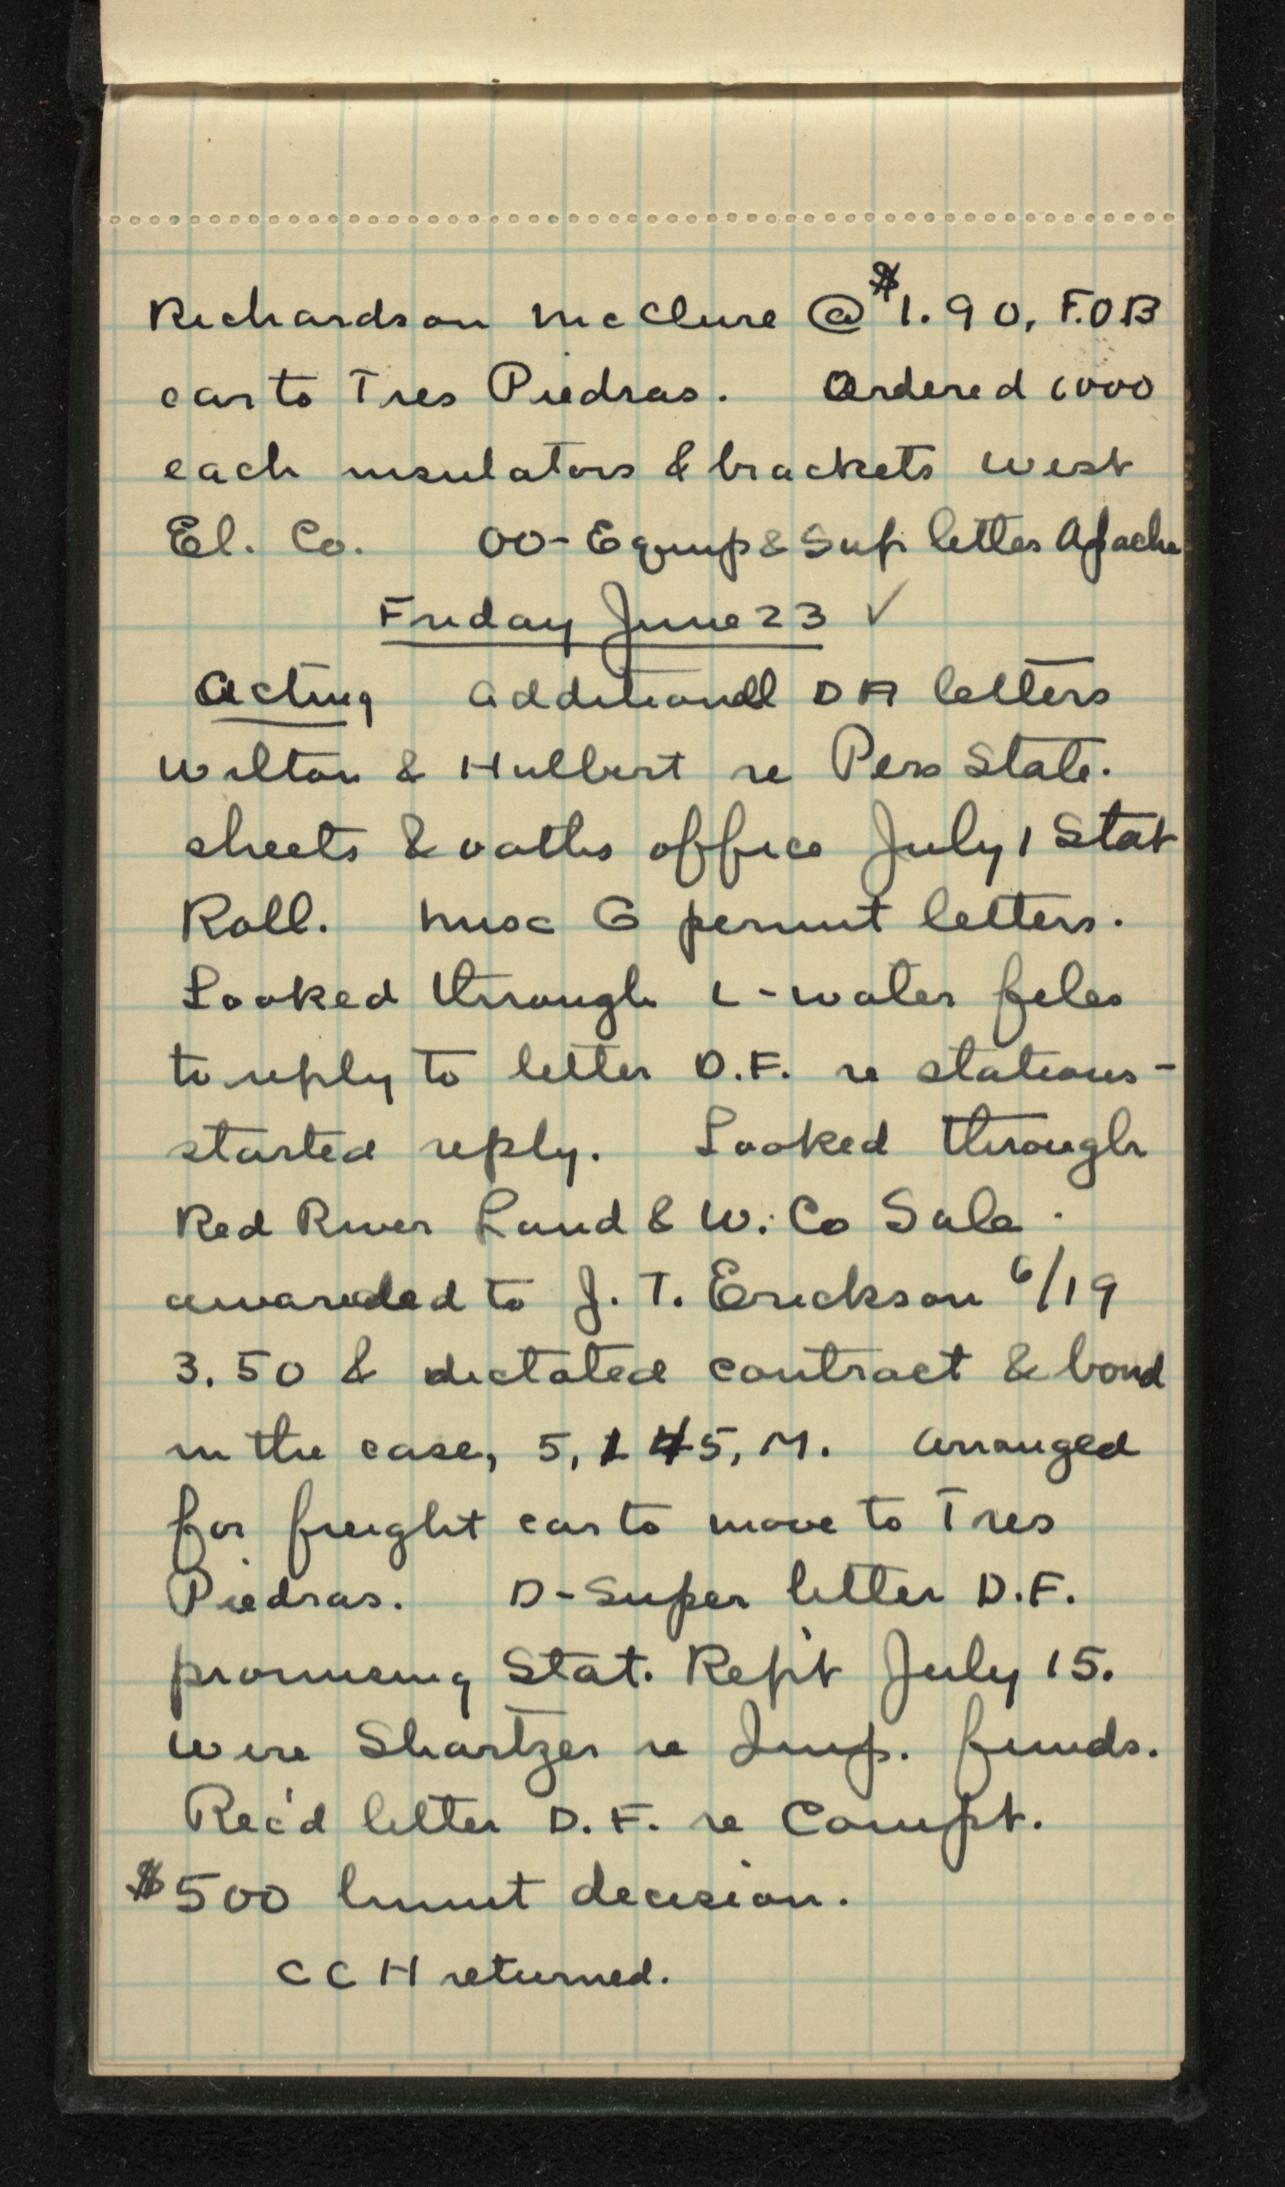 Richardson McClure @ $1.90, F.O.B
cars to Tres Piedras. Ordered 1000
each insulators & brackets West
El. Co. OO-Equip & Sup letter Apache
Friday June 23 ✓
Acting Additional DA letters
Wilton & Hulbert re Pers State.
sheets & oaths office July 1 Stat
Roll. Misc G permit letters.
Looked through L-water files
to reply to letter D.F. re stations -
started reply. Looked through
Red River Land & W. Co Sale.
awarded to J. T. Erickson 6/19
3.50 & dictated contract & bond
in the case, 5,145, M. Arranged
for freight car to move to Tres
Piedras. D-Super letter D.F.
promising Stat. Rep't July 15.
Wire Shartzer re Imp. funds.
Rec'd letter D.F. re Compt.
$500 limit decision.
CCH returned.